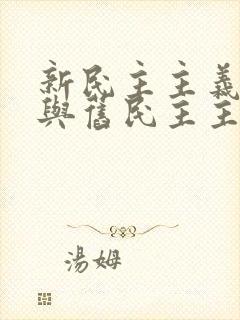 新民主主義
與舊民主主
湯姆